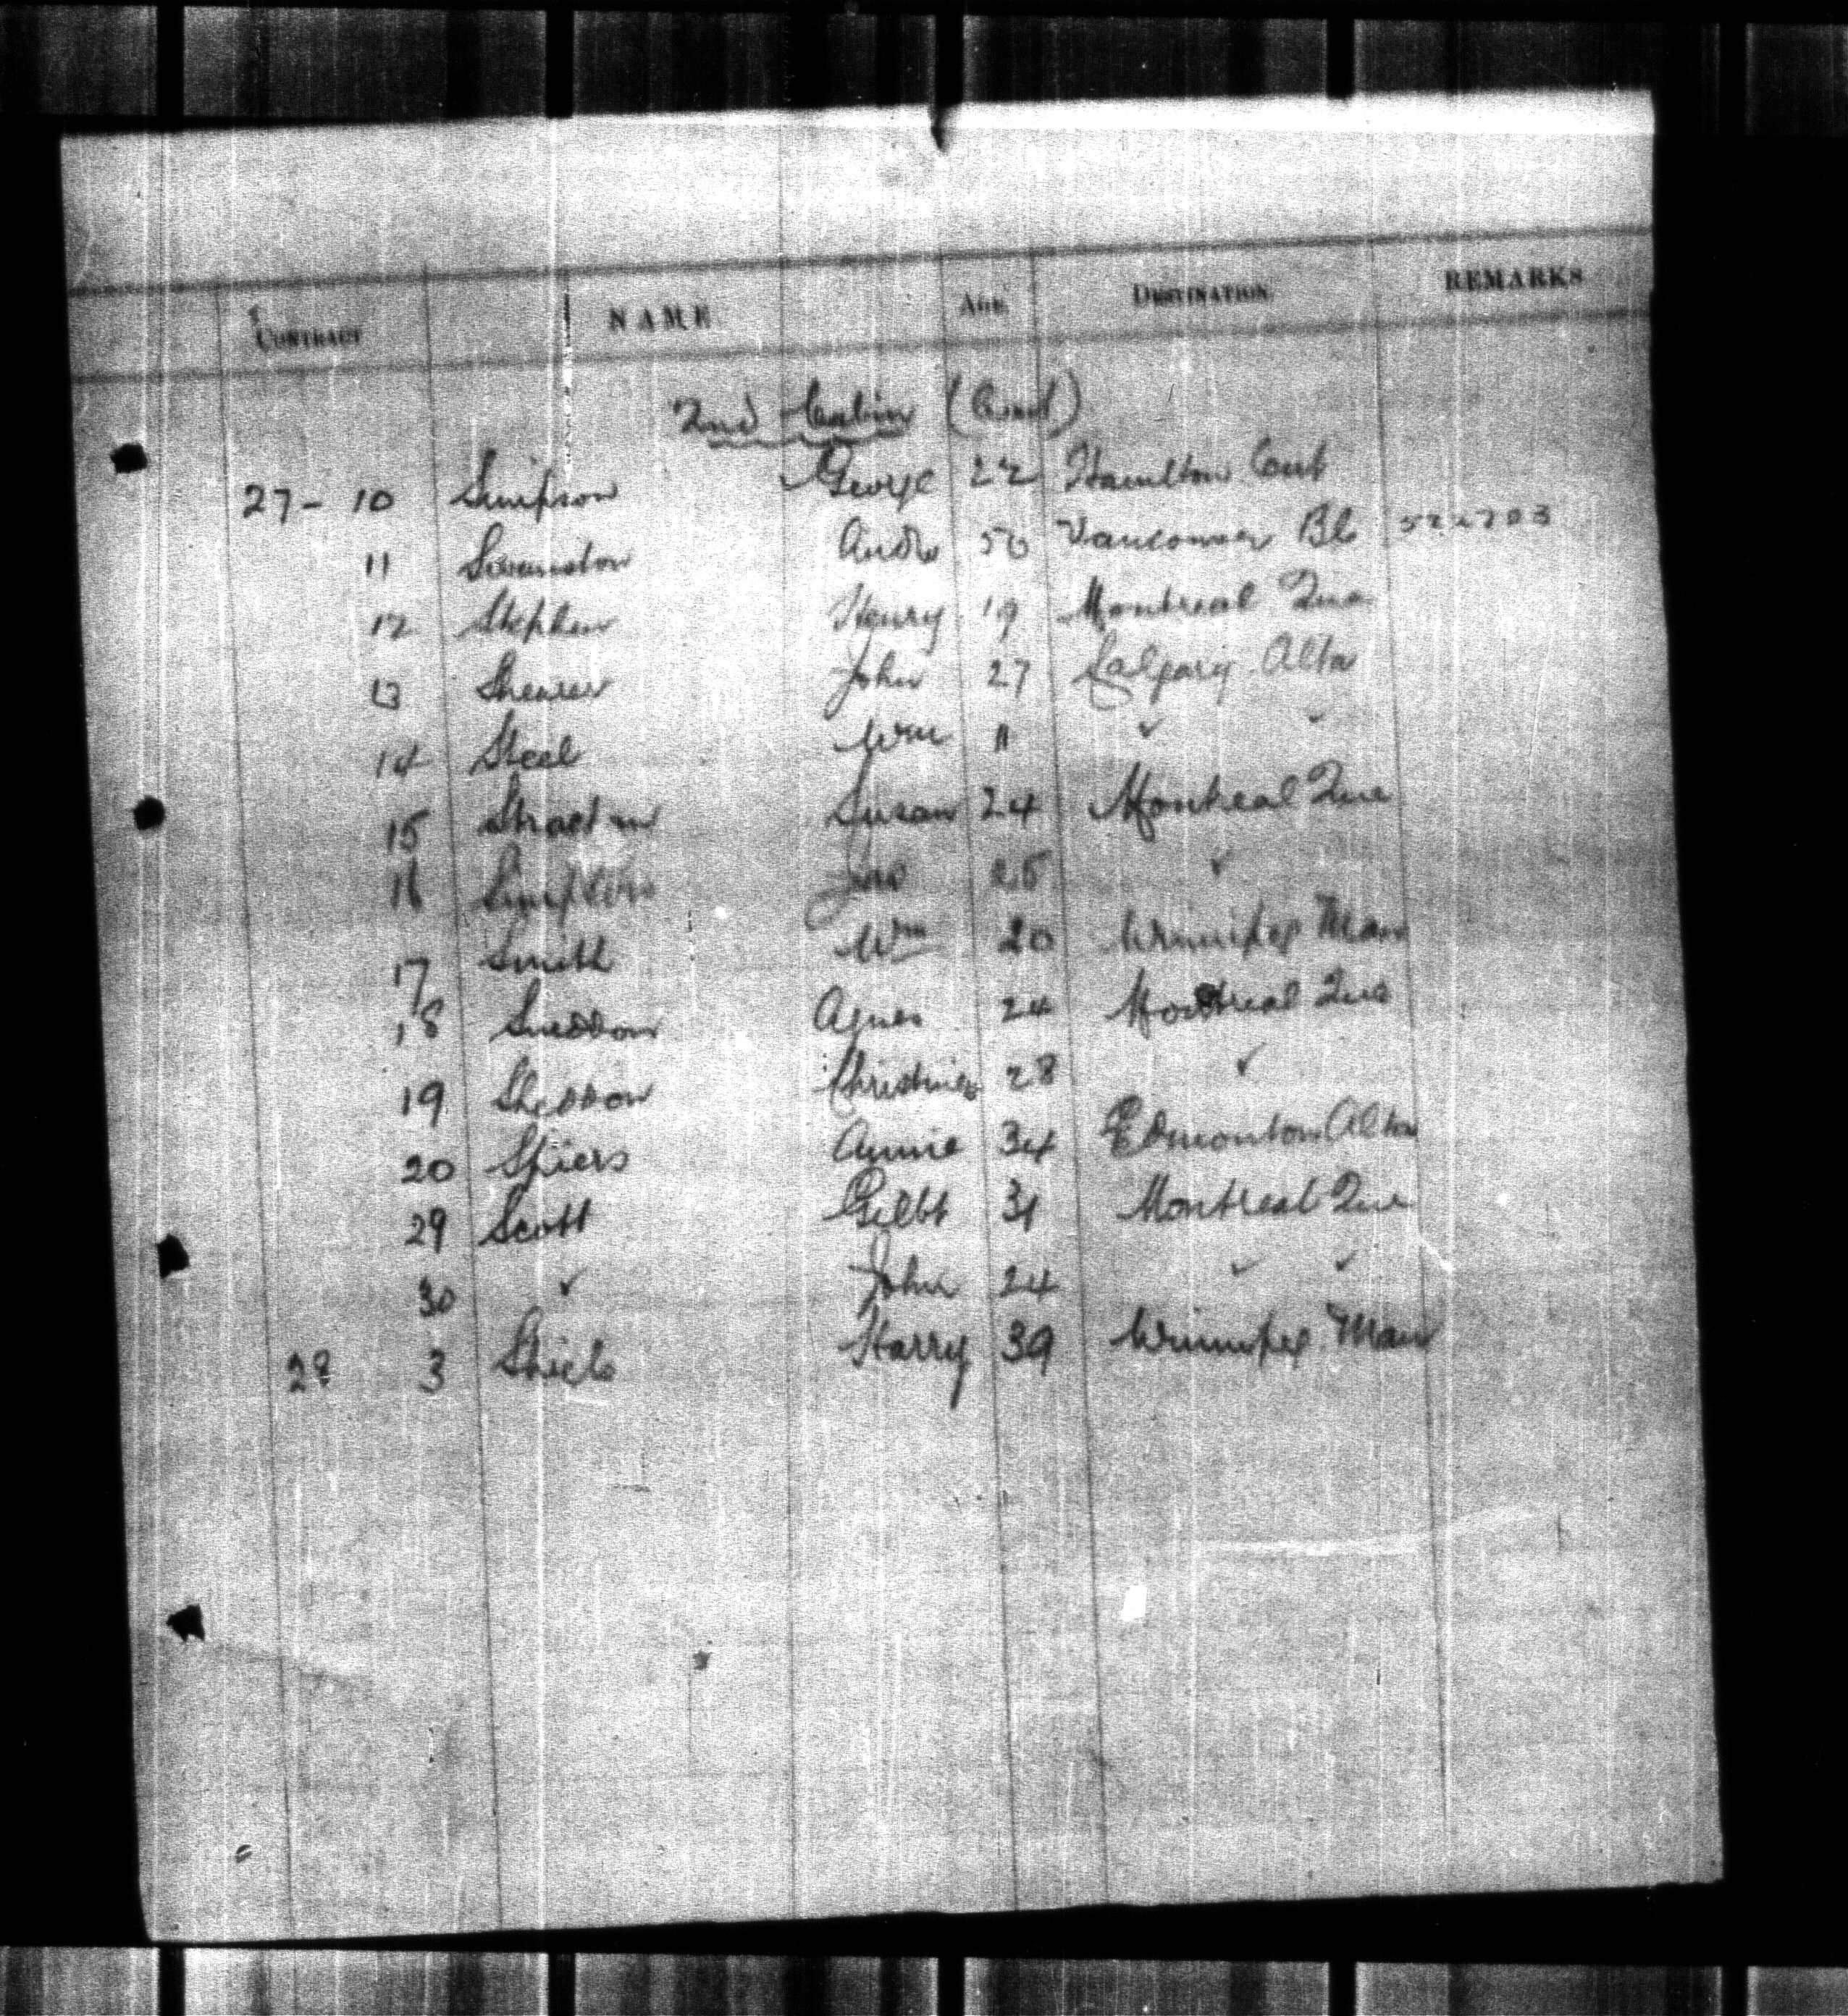 CONTRACT NAME AGE DESTINATION REMARKS
2nd Cabin (Cont)
27- 10 Simpson George 22 Hamilton Ont
11 Swanston Andw 50 Vancouver BC 522703
12 Stephen Henry 19 Montreal Que
13 Shearer John 27 Calgary Alta
14 Steel Wm 11 ✓ ✓
15 Susan 24 Montreal Que
16 Jas 25 ✓
17 Smith Wm 20 Winnipeg Man
18 Sneddon Agnes 24 Montreal Que
19 Sheddon Christina 28 ✓
20 Spiers Annie 34 Edmonton Alta
29 Scott Gilbt 31 Montreal Que
30 ✓ John 24 ✓ ✓
28 3 Shiels Harry 39 Winnipeg Man